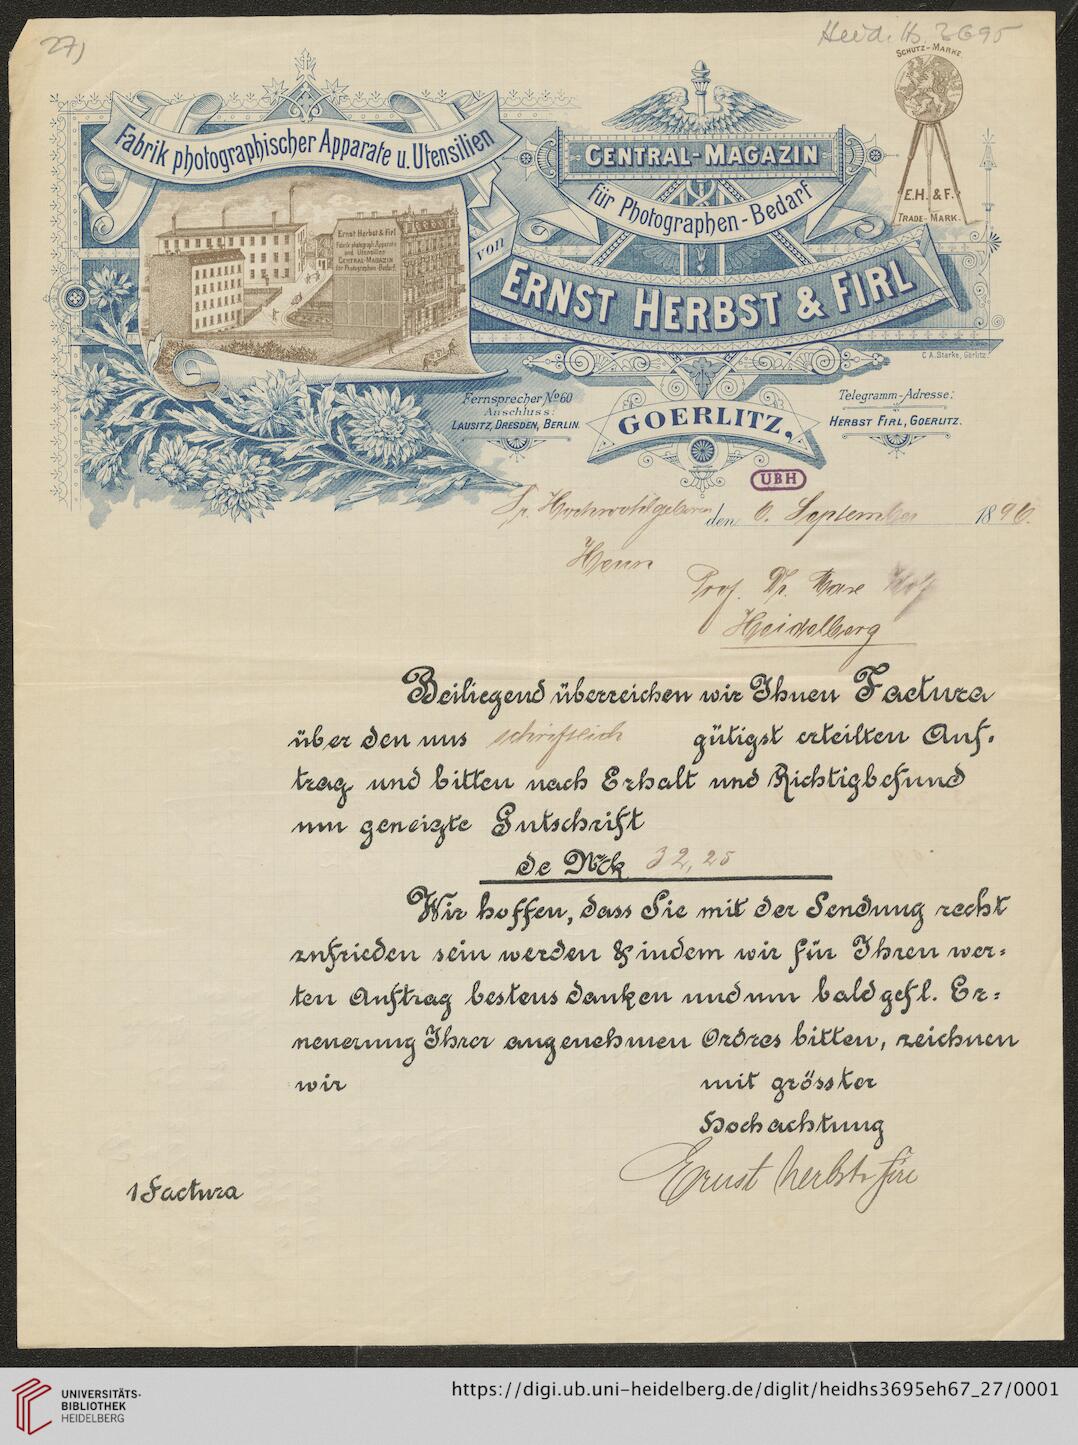 27)
Heid. Hs. 3695
Fabrik photographischer Apparate u. Utensilien
CENTRAL-MAGAZIN
für Photographen-Bedarf
von
ERNST HERBST & FIRL
SCHUTZ-MARKE
E.H. & F.
TRADE-MARK.
Ernst Herbst & Firl
Fabrik photograph. Apparate
und Utensilien
CENTRAL-MAGAZIN
für Photographen-Bedarf.
C.A. Starke, Görlitz.
Fernsprecher No 60
Anschluss:
LAUSITZ, DRESDEN, BERLIN.
GOERLITZ,
Telegramm-Adresse:
HERBST FIRL, GOERLITZ.
UBH
Sr. Hochwohlgeboren den 6. September 1896.
Herrn
Prof. Dr. Max Wolf
Heidelberg
Beiliegend überreichen wir Ihnen Factura
über den uns schriftlich gütigst erteilten Auf-
trag und bitten nach Erhalt und Richtigbefund
um geneigte Gutschrift
de Mck 32,25
Wir hoffen, dass Sie mit der Sendung recht
zufrieden sein werden & indem wir für Ihren wer=
ten Auftrag bestens danken und um bald gefl. Er=
neuerung Ihrer angenehmen Ordres bitten, zeichnen
wir mit grösster
Hochachtung
Ernst Herbst & Firl
1 Factura
UNIVERSITÄTS-
BIBLIOTHEK
HEIDELBERG
https://digi.ub.uni-heidelberg.de/diglit/heidhs3695eh67_27/0001